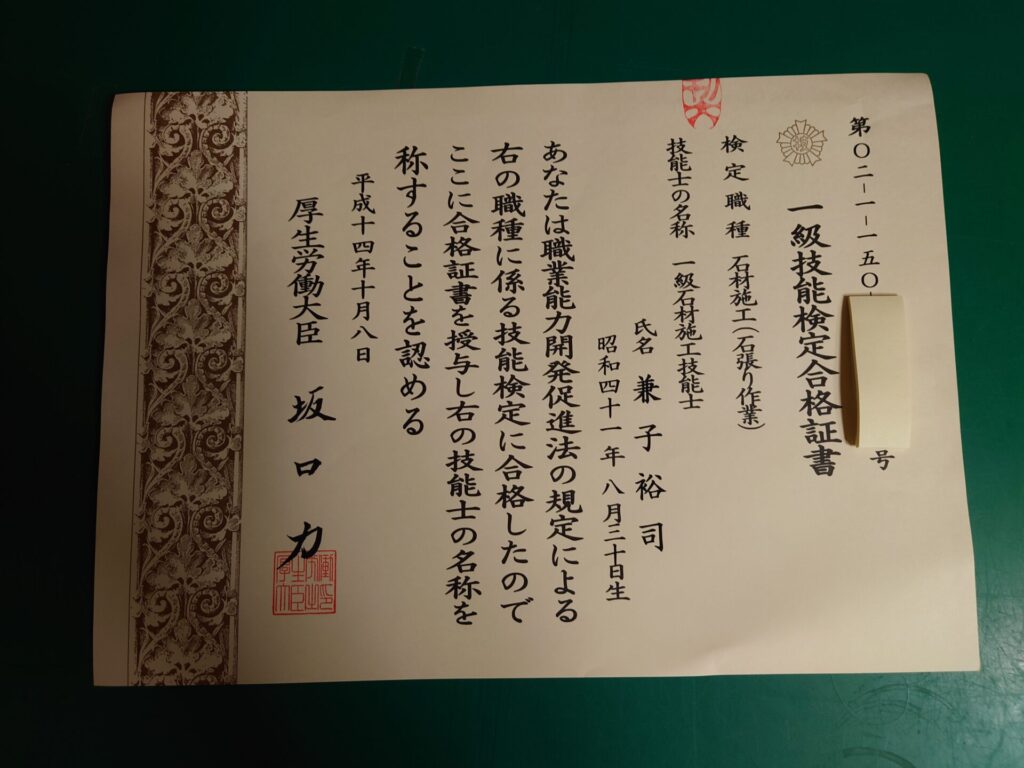 第〇二-一-一五〇-
号
一級技能検定合格証書
検定職種 石材施工(石張り作業)
技能士の名称 一級石材施工技能士
氏名 兼子裕司
昭和四十一年八月三十日生
あなたは職業能力開発促進法の規定による
右の職種に係る技能検定に合格したので
ここに合格証書を授与し右の技能士の名称を
称することを認める
平成十四年十月八日
厚生労働大臣 坂口力